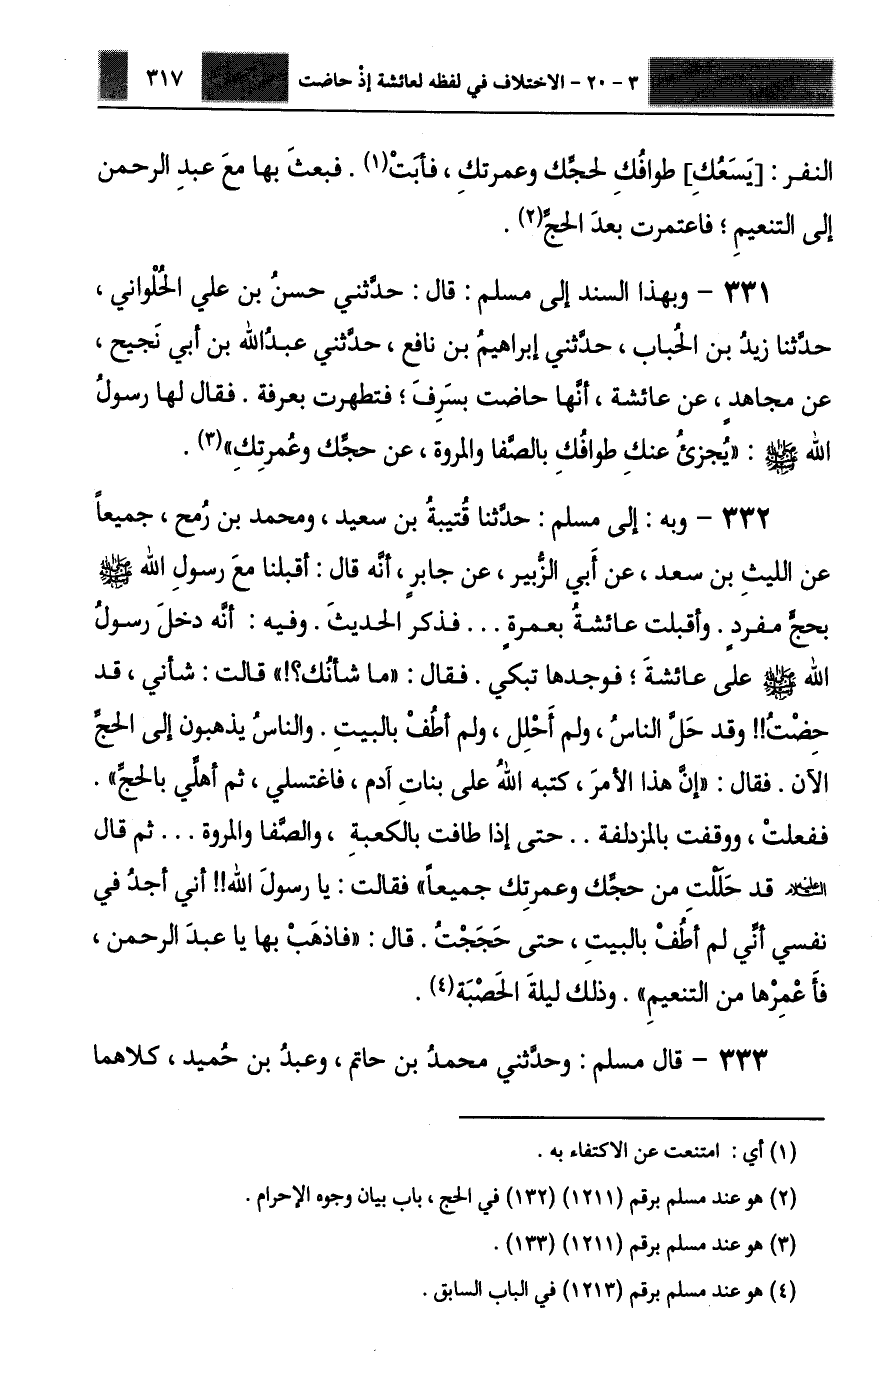 ٣ - ٢٠ - الاختلاف في لفظه لعائشة إذْ حاضت ٣١٧
النفـر : [يَسَعُكِ] طوافُكِ لحجِّك وعمرتكِ ، فأبَتْ(١) . فبعثَ بها معَ عبدِ الرحمن
إلى التنعيمِ ؛ فاعتمرت بعدَ الحجِّ(٢) .
٣٣١ - وبهذا السند إلى مسلم : قال : حدَّثني حسنُ بن علي الحُلْواني ،
حدَّثنا زيدُ بـن الحُباب ، حدَّثني إبراهيمُ بـن نافع ، حدَّثني عبـدُالله بن أبي نَجيح ،
عن مجاهدٍ ، عن عائشة ، أنَّها حاضت بسَرِفَ ؛ فتطهرت بعرفة . فـقال لـها رسـولُ
الله ﷺ : «يُجزئُ عنكِ طوافُكِ بالصَّفا والمروة ، عن حجِّك وعُمرتكِ»(٣) .
٣٣٢ - وبه : إلى مسلم : حدَّثنا قُتيبةُ بن سعيد ، ومحمد بن رُمح ، جميعاً
عن الليثِ بن سعد ، عن أَبي الزُّبير ، عن جابرٍ ، أنَّه قال : أقبلنا معَ رسولِ الله ﷺ
بحجٍّ مـفـردٍ . وأقبلت عـائشـةُ بعـمـرةٍ . . . فـذكـر الحديثَ . وفـيه : أنَّه دخلَ رسـولُ
الله ﷺ على عـائشـةَ ؛ فـوجـدها تبكي . فـقال : «مـا شأنُك؟!» قـالت : شأني ، قـد
حِضْتُ!! وقد حَلَّ الناسُ ، ولم أَحْلِل ، ولم أطُفْ بالبيتِ . والناسُ يذهبون إلى الحجِّ
الآن . فقال : «إنَّ هذا الأمرَ ، كتبه اللهُ على بناتِ آدم ، فاغتسلي ، ثم أهلِّي بالحجِّ» .
ففعلتْ ، ووقفت بالمزدلفة . . حتى إذا طافت بالكعبةِ ، والصَّفا والمروة . . . ثم قال
العليه السلام قد حَلَلْتِ من حجِّك وعمرتِك جميعاً» فقالت : يا رسولَ الله!! أني أجدُ في
نفسي أنَّي لم أطُفْ بالبيتِ ، حتى حَجَجْتُ . قال : «فاذهَبْ بها يا عبدَ الرحمن ،
فأَعْمِرْها من التنعيمِ» . وذلك ليلةَ الحَصْبَة(٤) .
٣٣٣ - قال مسلم : وحدَّثني محمدُ بن حاتم ، وعبدُ بن حُميد ، كـلاهمـا
(١) أي : امتنعت عن الاكتفاء به .
(٢) هو عند مسلم برقم (١٢١١) (١٣٢) في الحج ، باب بيان وجوه الإحرام .
(٣) هو عند مسلم برقم (١٢١١) (١٣٣) .
(٤) هو عند مسلم برقم (١٢١٣) في الباب السابق .